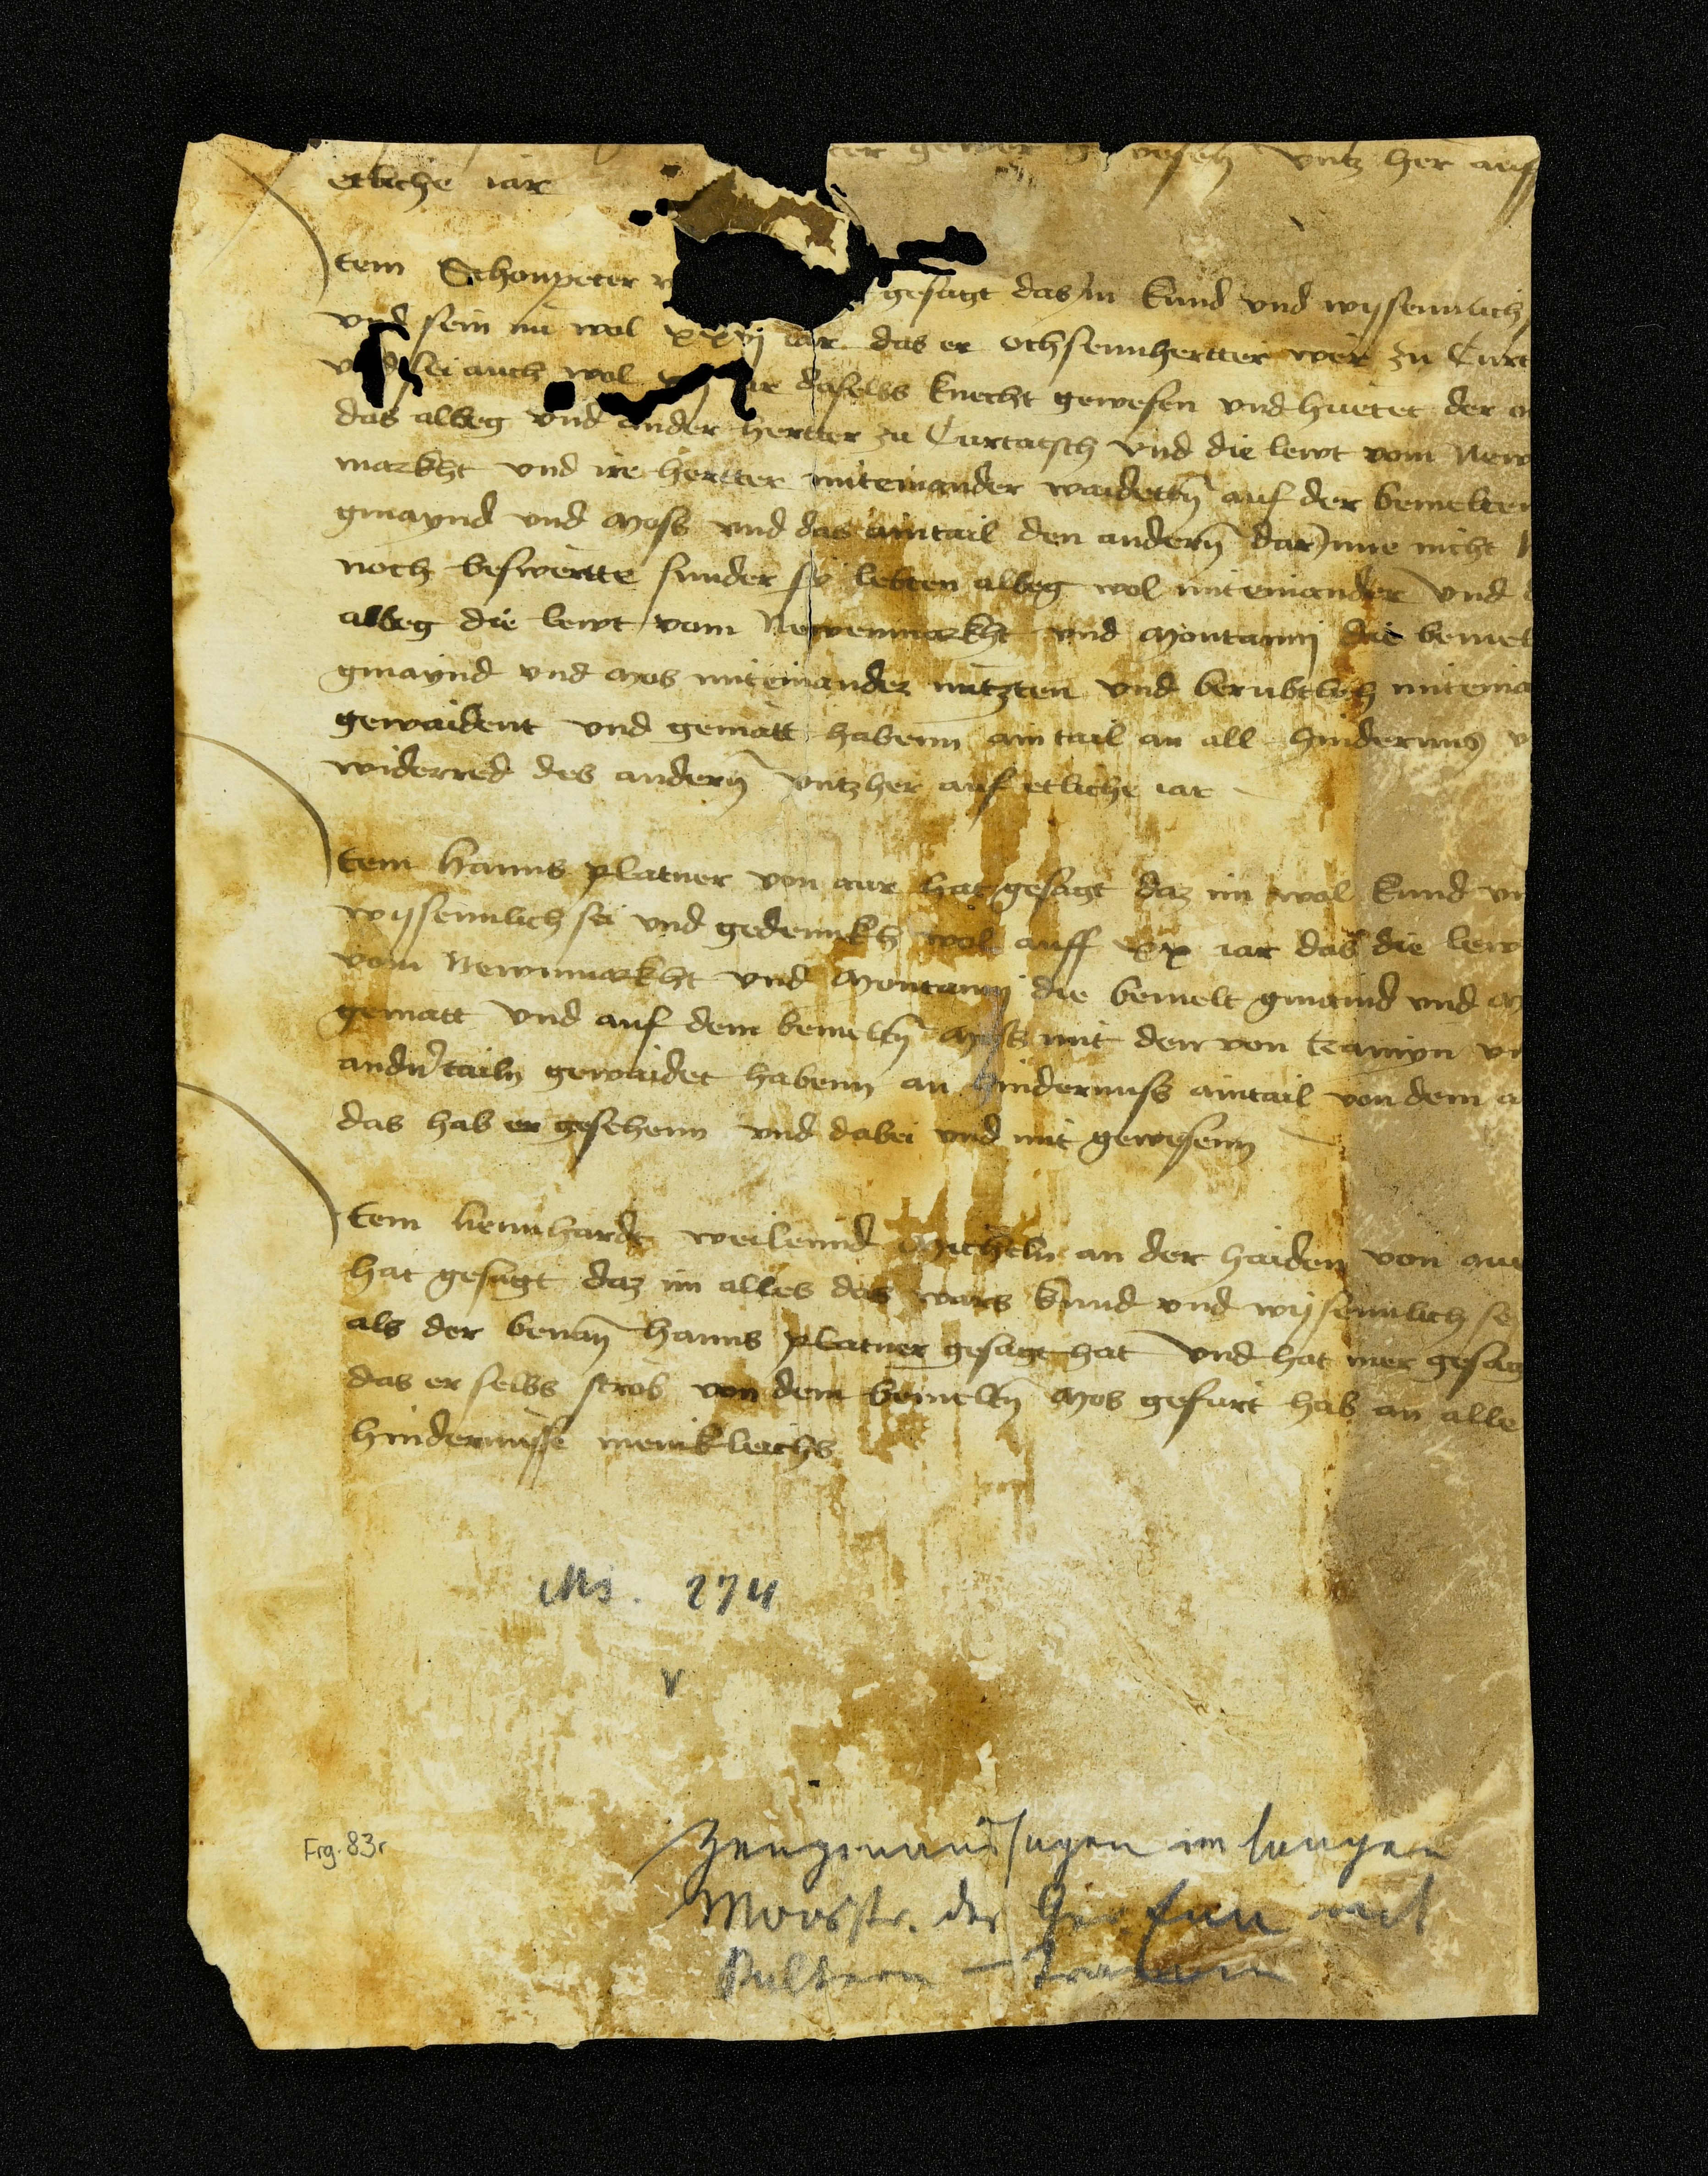 gewer vntz her auf
etliche iar
Item Schonpeter gesagt das im kund vnd wyssennlich
vnd sein nu wol xxvj iar das er ochsennhertter wer zu Curt
vnd sei auch wol daselbs knecht gewesen vnd huetet der
das albeg vnd ander hertter zu Curtatsch vnd die lewt vom New
markht vnd ire hertter miteinander waidetñ auf der bemelten
gmaynd vnd Moss vnd das aintail den anderñ darInne nicht
noch beswertte sunder sy lebten albeg wol miteinander vnd
albeg die lewt vom Newenmarkht vnd Montanij die bemel
gmaynd vnd Mos miteinander nutzten vnd miteina
gewaident vnd gematt habenn ain tail an all hindernuss v
widerred des anderñ vntzher auf etliche iar
Item Hanns platner von aur hat gesagt daz im wol kund vn
wyssennlich sei vnd gedennkh wol auff xx iar das die lew
vom Newnmarkht vnd Montanij die bemelt gmaind vnd M
gematt vnd auf dem bemeltñ Moss mit den von tramyn vn
andñ tailn gewaidet habenn an hindernuss aintail von dem a
das hab er gesehenn vnd dabei vnd mit gewesenn
Item liennhardt weilennd Micheln an der haiden von aur
hat gesagt daz im alles das kund vnd wyssennlich se
als der benañ Hanns platner gesagt hat vnd hat mer gesag
das er selbs strob von dem bemeltñ Mos gefurt hab an alle
hindernusse menikleichs
Ms. 274
v
Frg. 83r
Zeugenaussagen im langen
Moosstr. der Gem. Enn mit
Kaltern – Tramin